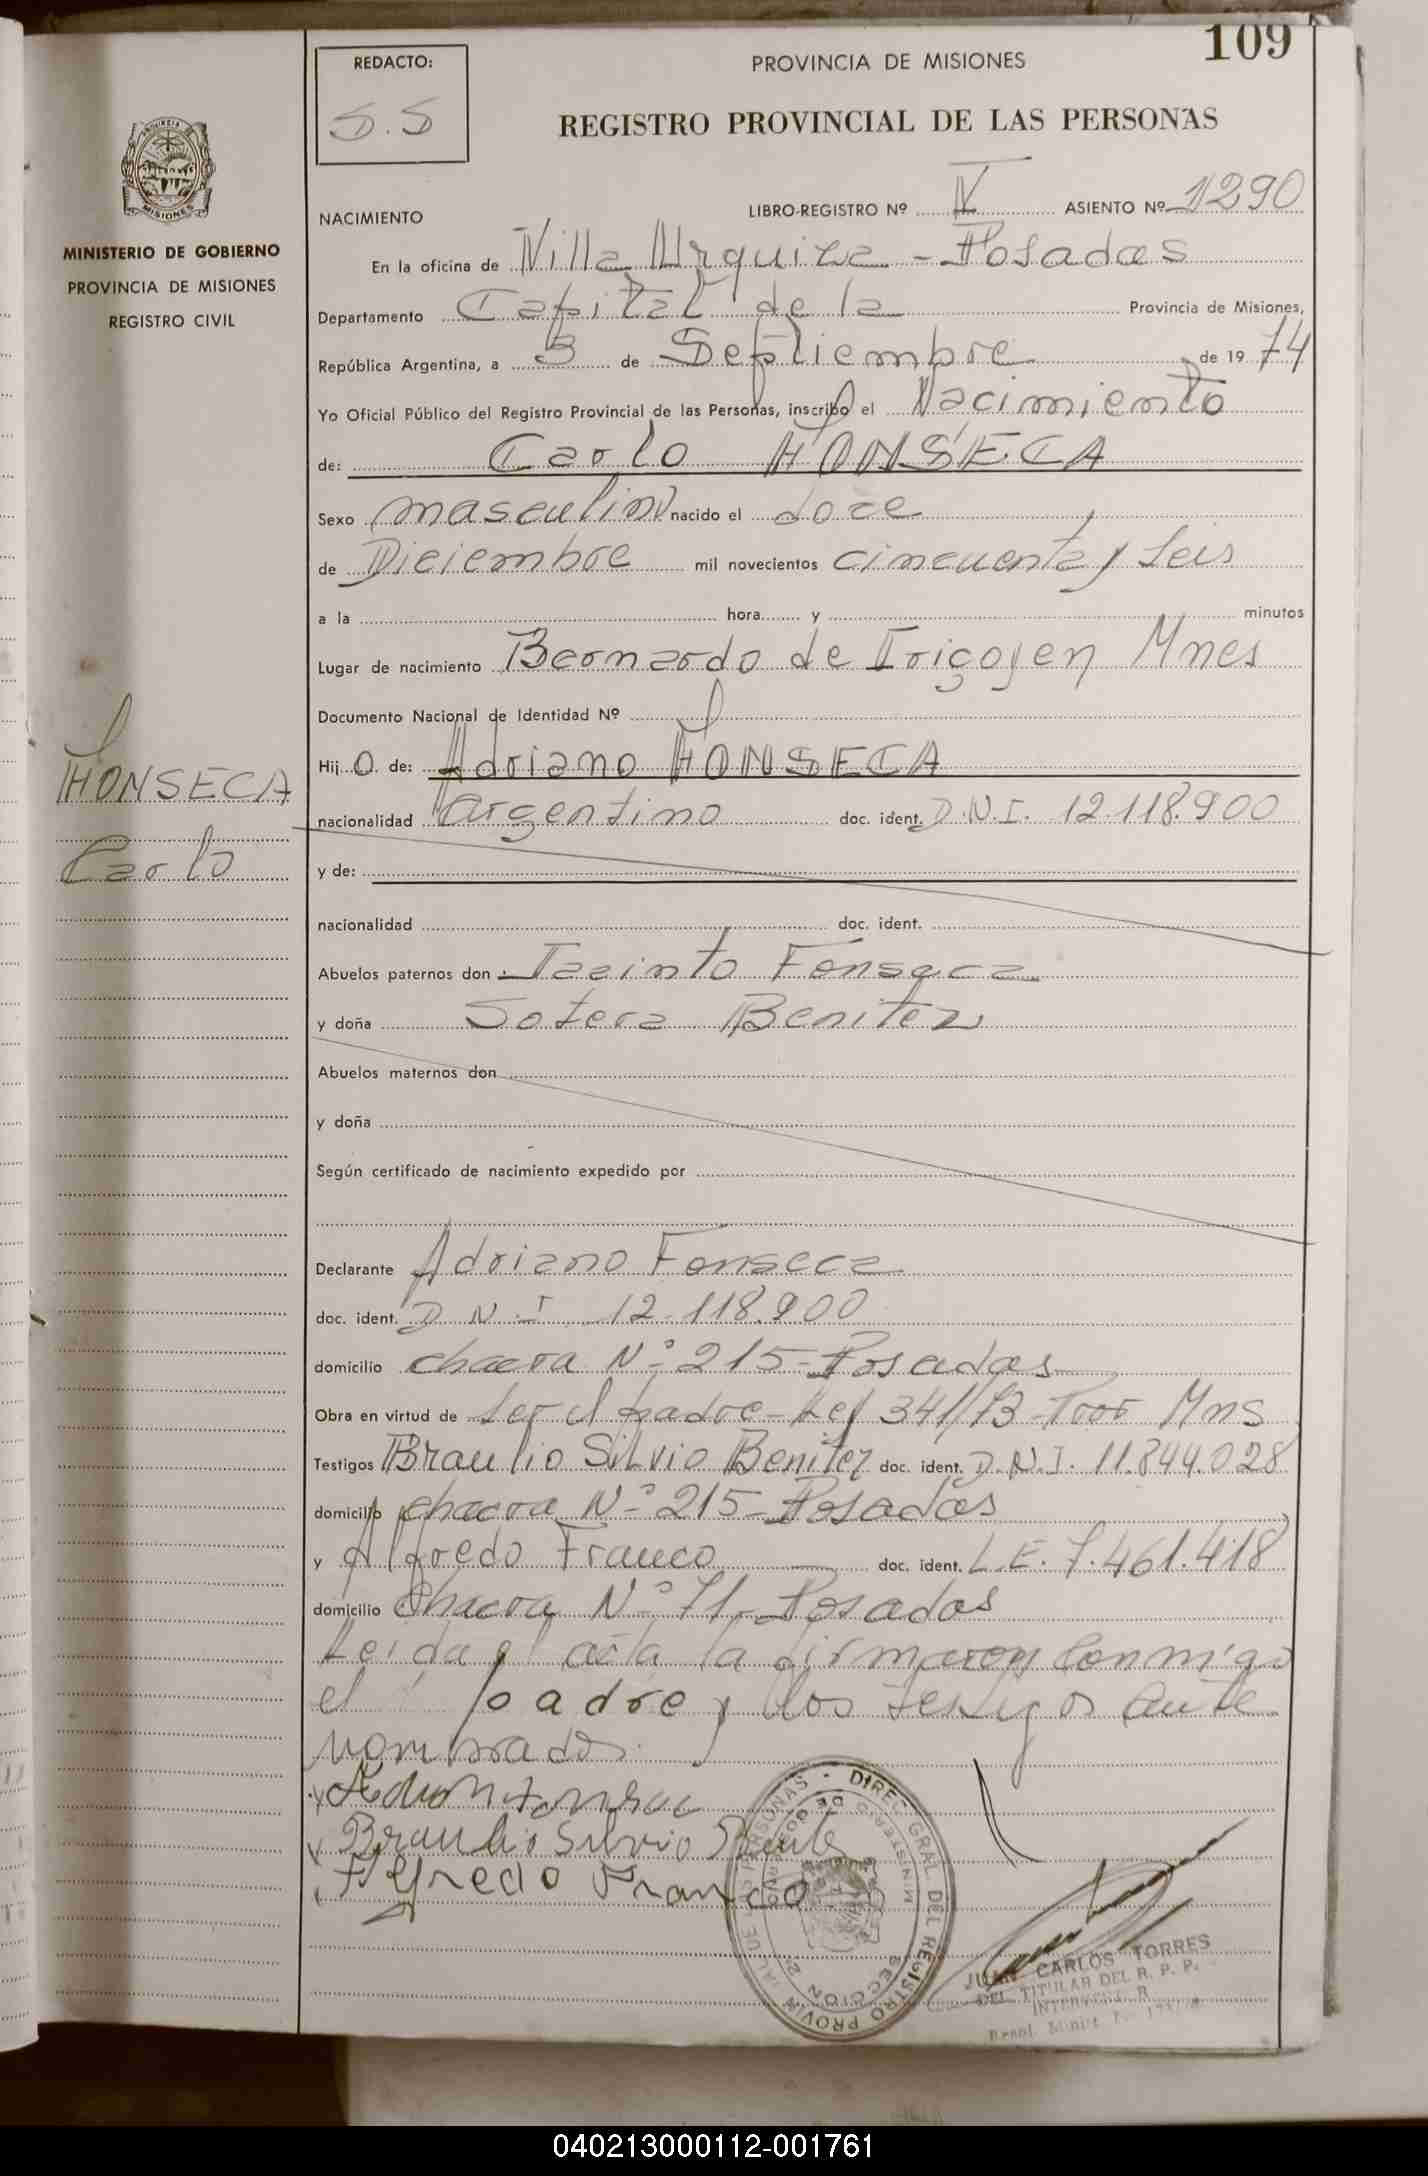 109
REDACTO:
S.S
PROVINCIA DE MISIONES
REGISTRO PROVINCIAL DE LAS PERSONAS
MINISTERIO DE GOBIERNO
PROVINCIA DE MISIONES
REGISTRO CIVIL
NACIMIENTO LIBRO-REGISTRO Nº IV ASIENTO Nº 1290
En la oficina de Villa Urquiza - Posadas
Departamento Capital de la Provincia de Misiones,
República Argentina, a 3 de Septiembre de 19 74
Yo Oficial Público del Registro Provincial de las Personas, inscribo el Nacimiento
de: Carlo FONSECA
Sexo masculino nacido el doce
de Diciembre mil novecientos cincuenta y seis
a la hora y minutos
Lugar de nacimiento Bernardo de Irigoyen Mnes
Documento Nacional de Identidad Nº
Hij o de: Adriano FONSECA
nacionalidad argentino doc. ident. D.N.I. 12.118.900
y de:
nacionalidad doc. ident.
Abuelos paternos don Jacinto Fonseca
y doña Sotera Benitez
Abuelos maternos don
y doña
Según certificado de nacimiento expedido por
Declarante Adriano Fonseca
doc. ident. D N I 12.118.900
domicilio chacra Nº 215 - Posadas
Obra en virtud de ser el padre - Ley 341/73 - Mns
Testigos Braulio Silvio Benitez doc. ident. D.N.I. 11.844.028
domicilio chacra Nº 215 - Posadas
y Alfredo Franco doc. ident. L.E. 7.461.418
domicilio Chacra Nº 71 - Posadas
Leida el acta la firmaron conmigo
el padre y los testigos ante
nombrados.
Braulio Silvio
Alfredo Franco
FONSECA
Carlo
JUAN CARLOS TORRES
DEL TITULAR DEL R. P. P.
040213000112-001761